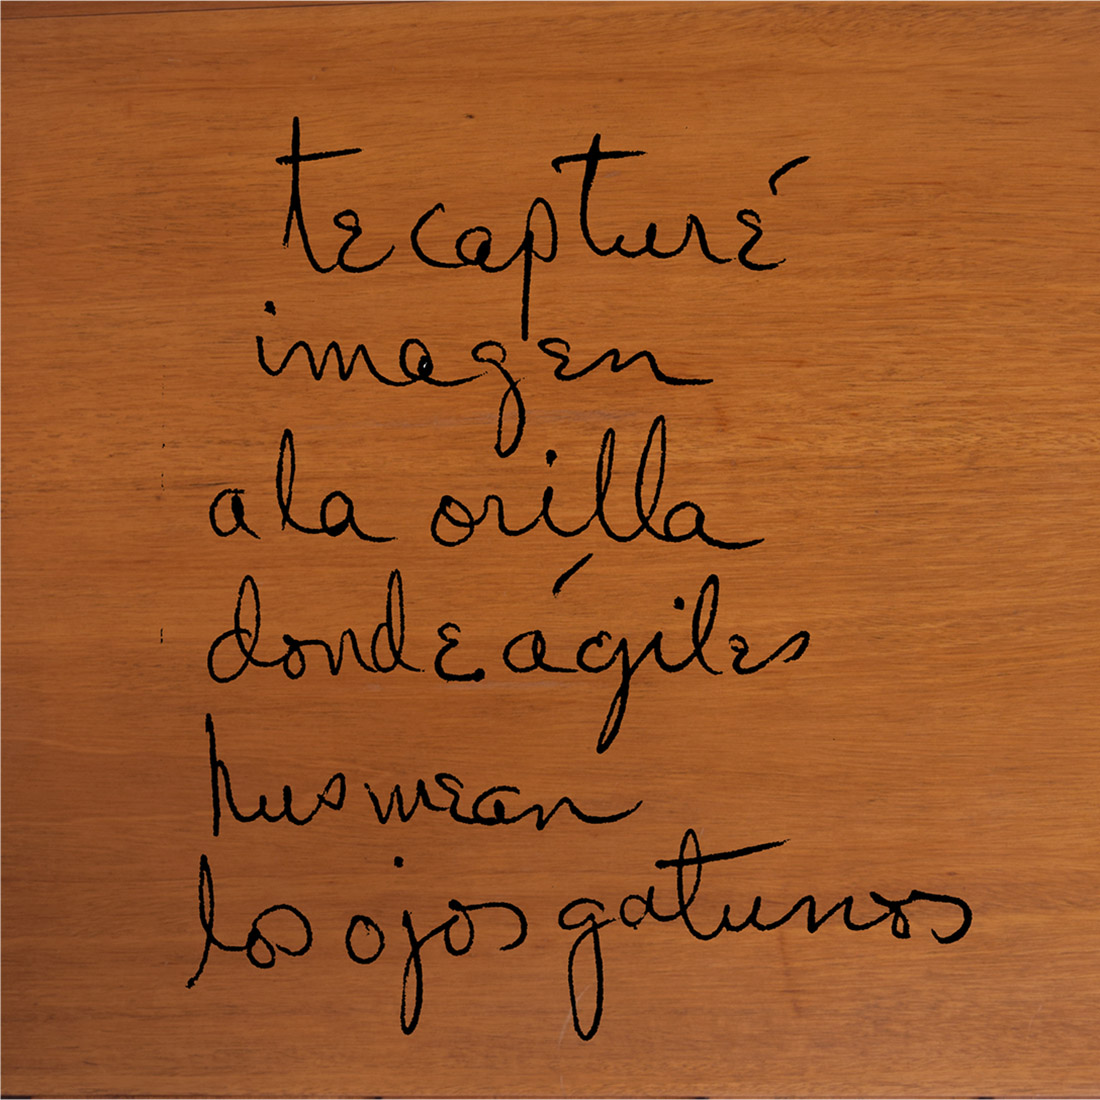 te capturé
imagen
a la orilla
donde ágiles
husmean
los ojos gatunos